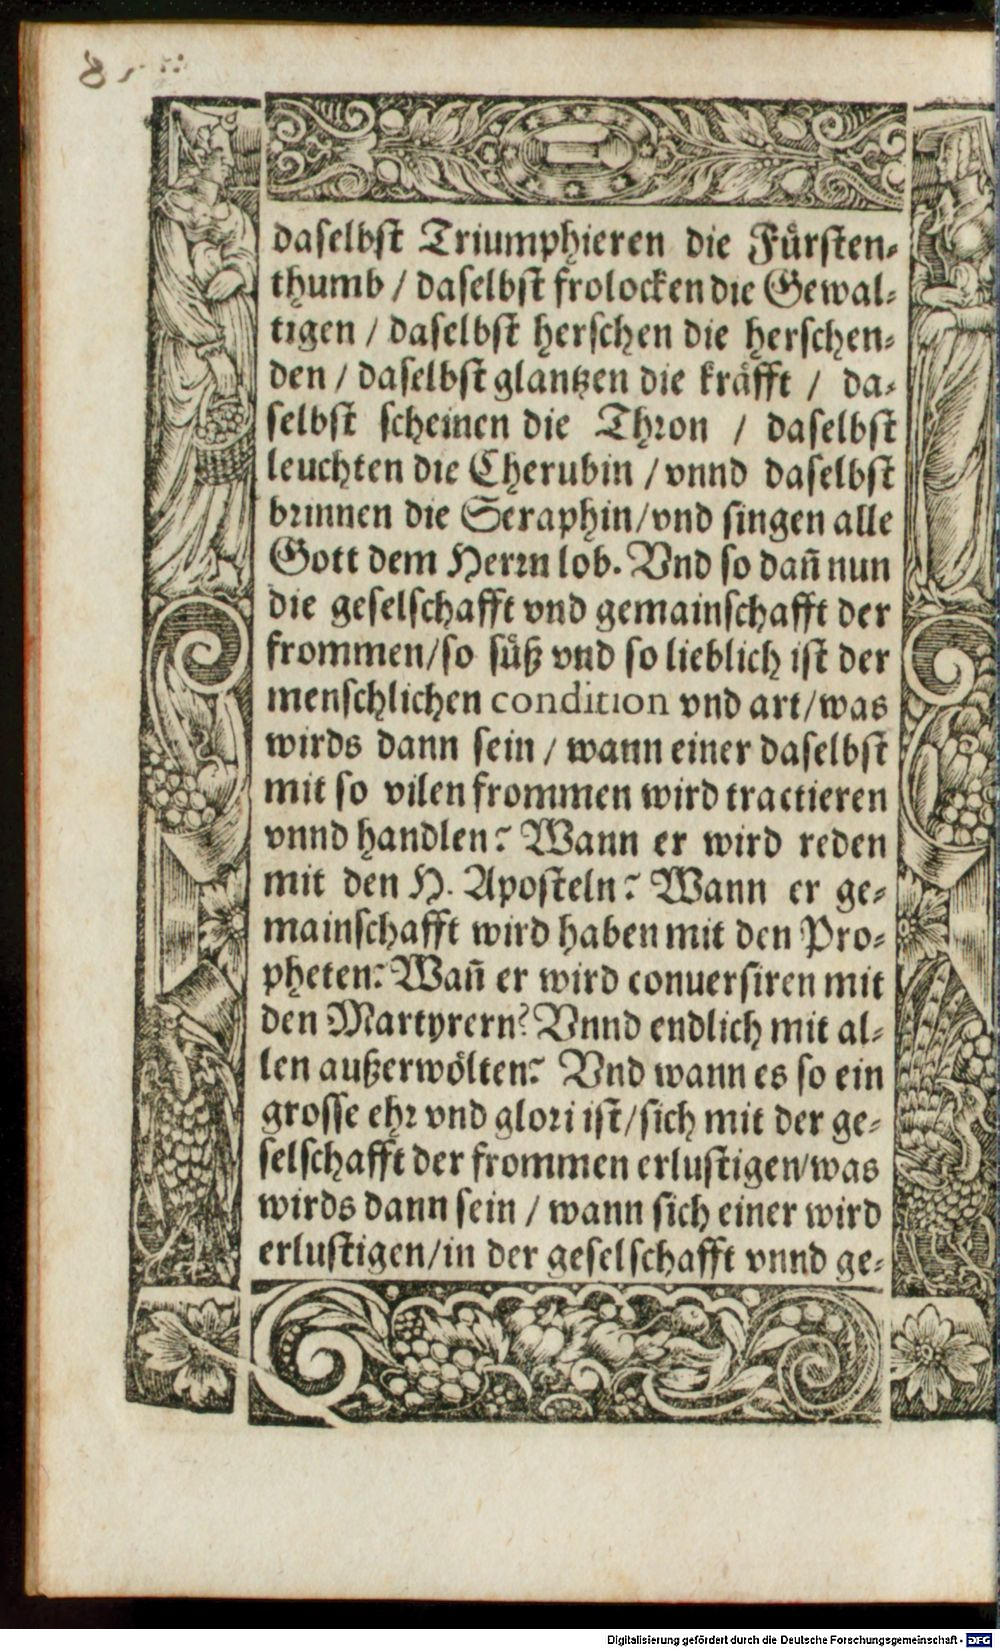 daselbst Triumphieren die Fuͤrsten⸗
thumb / daselbst frolocken die Gewal⸗
tigen / daselbst herschen die herschen⸗
den / daselbst glantzen die kraͤfft / da⸗
selbst scheinen die Thron / daselbst
leuchten die Cherubin / vnnd daselbst
brinnen die Seraphin/vnd singen alle
Gott dem Herrn lob. Vnd so dañ nun
die geselschafft vnd gemainschafft der
frommen/so suͤß vnd so lieblich ist der
menschlichen condition vnd art/was
wirds dann sein / wann einer daselbst
mit so vilen frommen wird tractieren
vnnd handlen? Wann er wird reden
mit den H. Aposteln? Wann er ge⸗
mainschafft wird haben mit den Pro⸗
pheten? Wañ er wird conuersiren mit
den Martyrern? Vnnd endlich mit al⸗
len außerwoͤlten? Vnd wann es so ein
grosse ehr vnd glori ist/sich mit der ge⸗
selschafft der frommen erlustigen/was
wirds dann sein / wann sich einer wird
erlustigen/in der geselschafft vnnd ge⸗
Digitalisierung gefördert durch die Deutsche Forschungsgemeinschaft - DFG